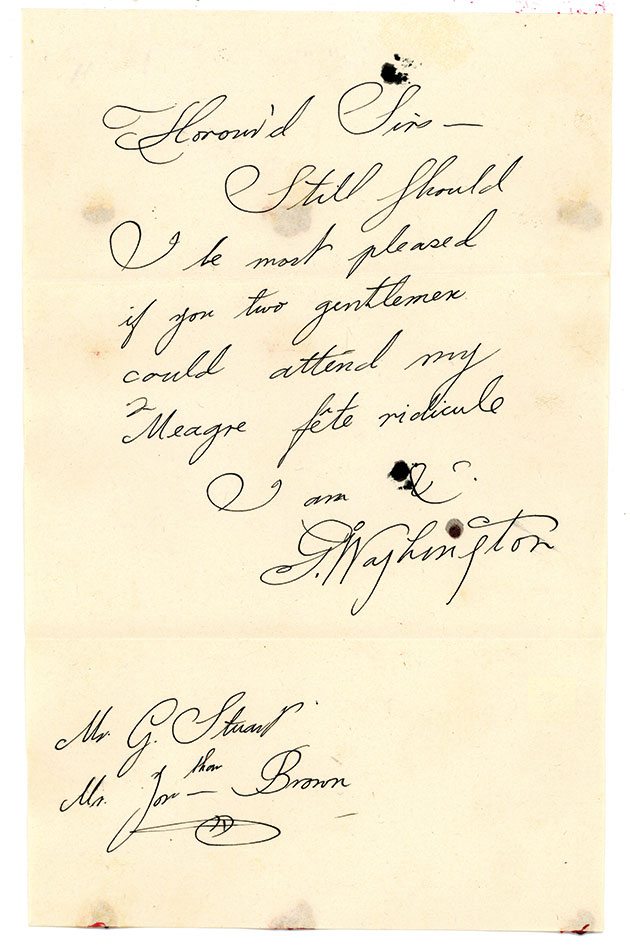 Honour'd Sirs —
Still should
I be most pleased
if you two gentlemen
could attend my
Meagre fête ridicule
I am &c.
G. Washington
Mr. G. Stuart
Mr. Jonathan Brown